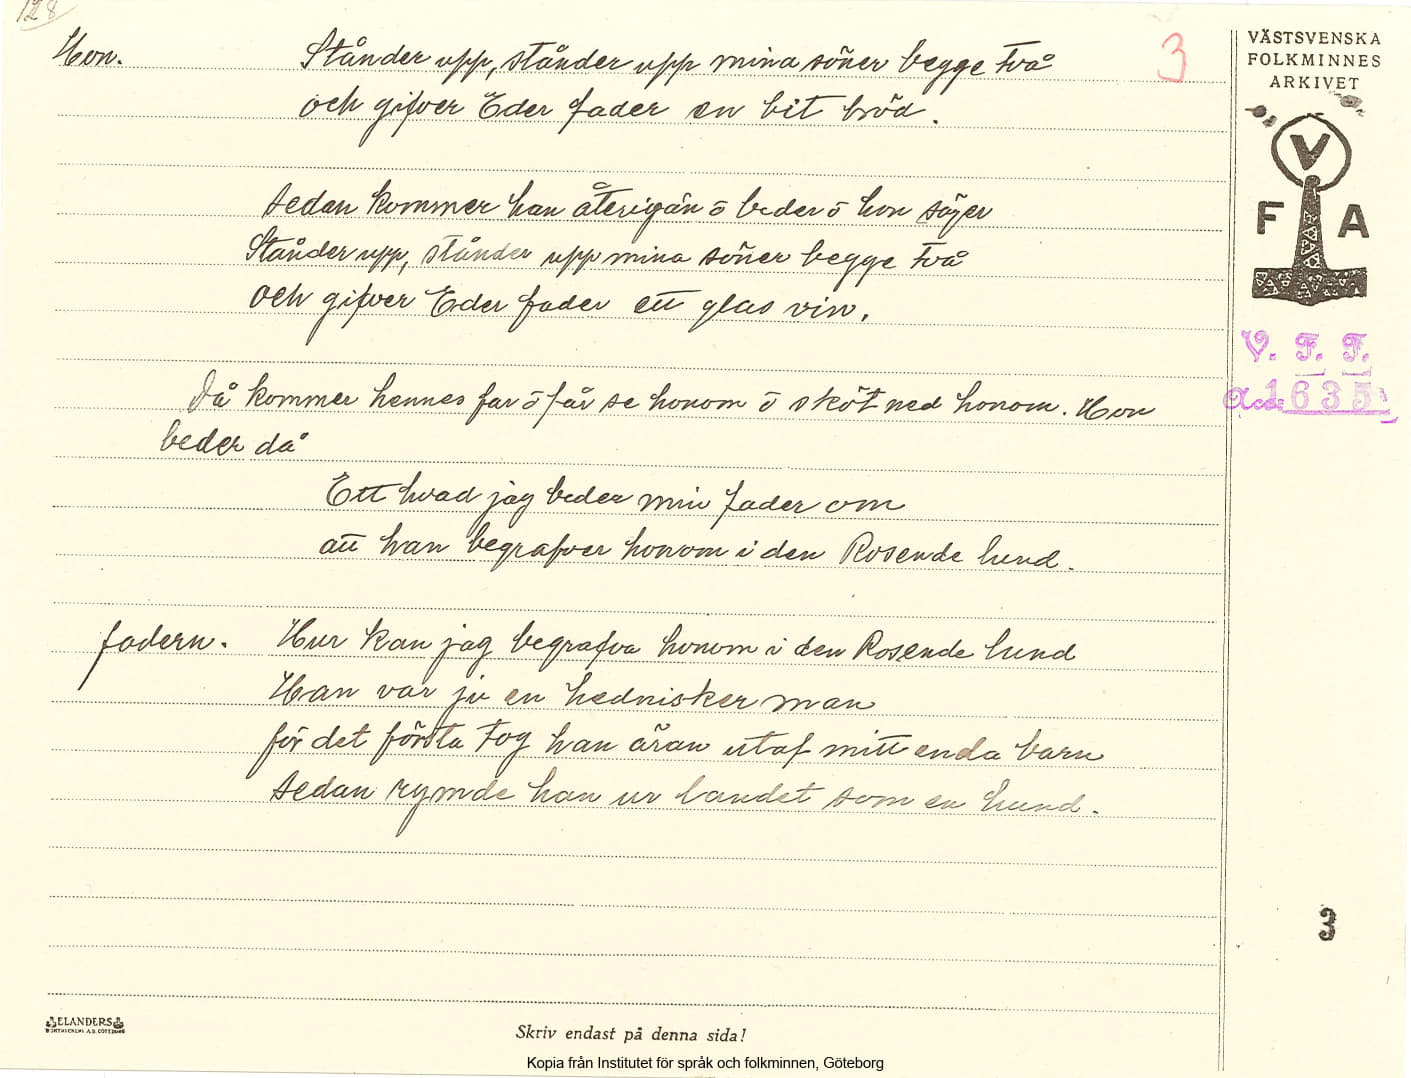 128
Hon. Stånder upp, stånder upp mina söner begge två
3
och gifver Eder fader en bit bröd.
sedan kommer han återigän ö beder ö hon säger
Stånder upp, stånder upp mina söner begge två
och gifver Eder fader ett glas vin.
Då kommer hennes far ö får se honom ö sköt ned honom. Hon
beder då
Ett hvad jag beder min fader om
att han begrafver honom i den Rosende lund.
fadern. Hur kan jag begrafva honom i den Rosende lund
Han var ju en hednisker man
för det första tog han äran utaf mitt enda barn
sedan rymde han ur landet som en hund.
VÄSTSVENSKA
FOLKMINNES
ARKIVET
V
F A
V. F. F.
Acc: 1635
3
ELANDERS
BOKTRYCKERI A.B. GÖTEBORG
Skriv endast på denna sida!
Kopia från Institutet för språk och folkminnen, Göteborg